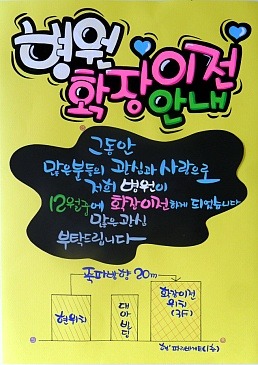 병원
확장이전
안내
그동안
많은분들의 관심과 사랑으로
저희 병원이
12월중에 확장이전하게 되었습니다
많은관심
부탁드립니다
쪽파방향 20m
현위치
대아빌딩
확장이전
위치
(3F)
현 파리바게트(1층)